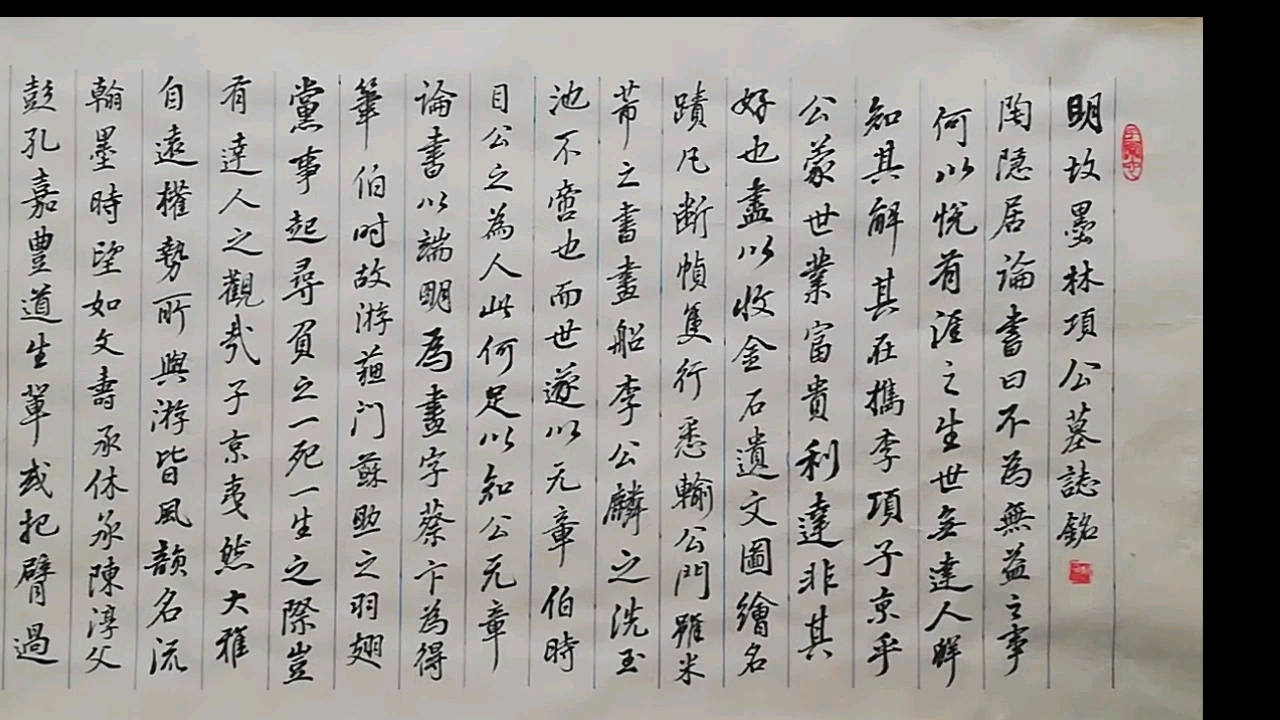 明故墨林項公墓誌銘
陶隱居論書曰不為無益之事
何以悅有涯之生世無達人鮮
知其解其在攜李項子京乎
公蒙世業富貴利達非其
好也盡以收金石遺文圖繪名
蹟凡断幀隻行悉輸公門雖米
芾之書畫船李公麟之洗玉
池不啻也而世遂以元章伯時
目公之為人此何足以知公元章
論書以端明為畫字蔡卞為得
筆伯时故游蘓门蘇助之羽翅
黨事起尋負之一死一生之際豈
有達人之觀哉子京夷然大雅
自遠權勢所與游皆風韻名流
翰墨時望如文壽承休承陳淳父
彭孔嘉豊道生軰或把臂過